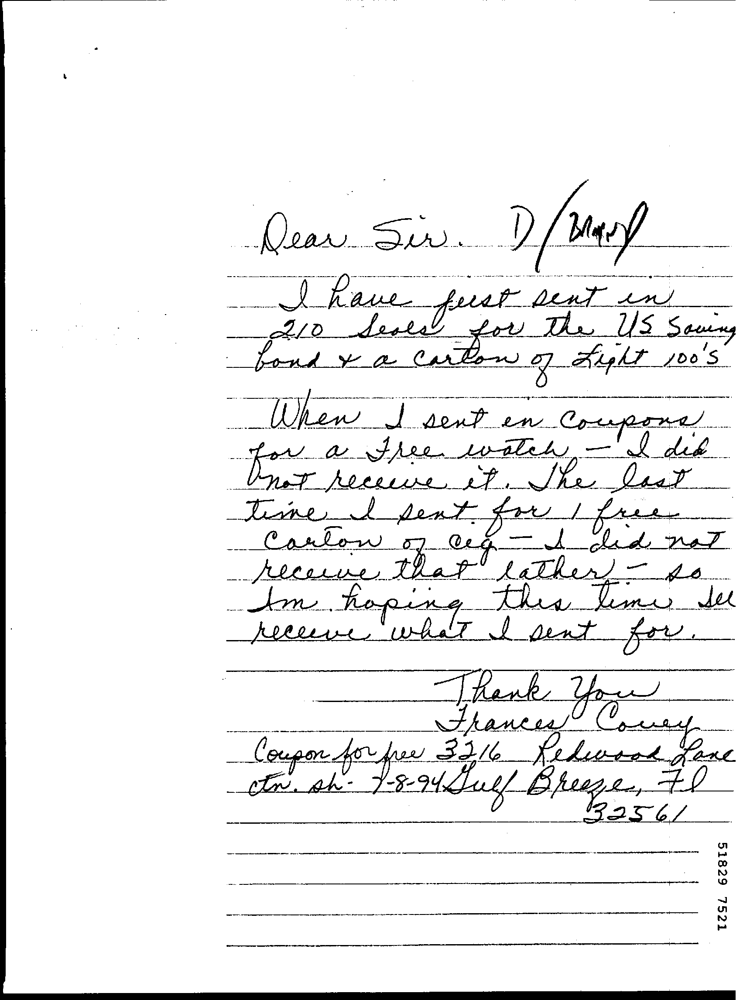 Dear Sir. D/
I have just sent in
210 Seals for the US Saving
bond & a carton of Light 100's
When I sent in coupons
for a Free watch - I did
not receive it. The last
time I sent for 1 free
Carton of cig - I did not
receive that eather - so
Im hoping this time Ill
receive what I sent for.
Thank You
Frances Covey
Coupon for free 3216 Redwood Lane
ctn. sh - 7-8-94 Gulf Breeze, Fl
32561
51829 7521